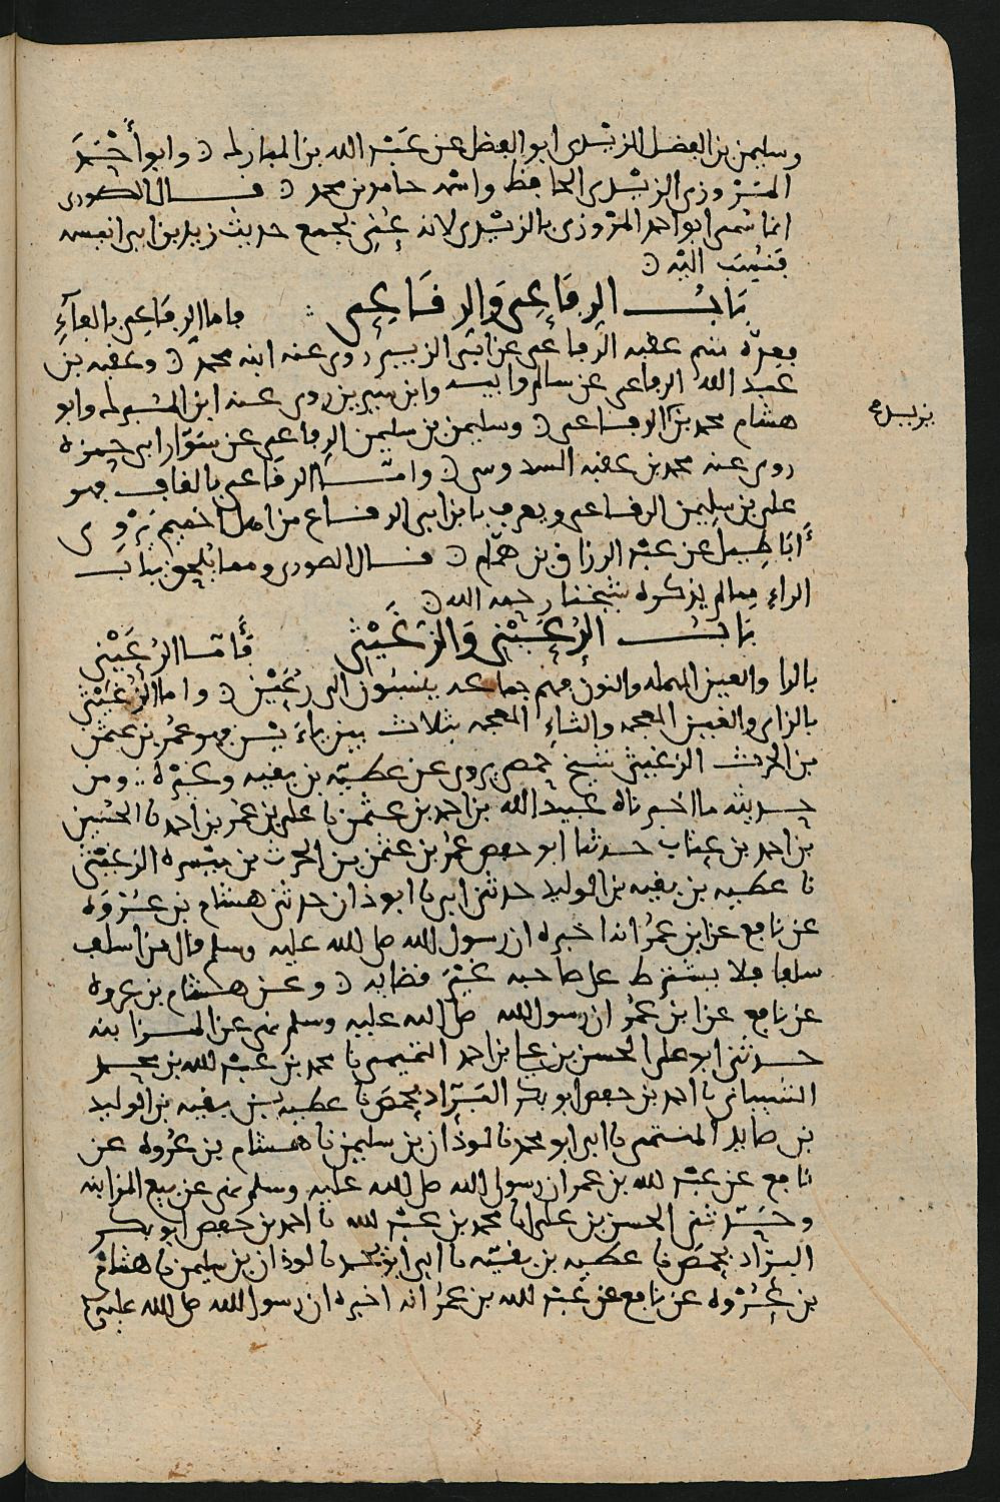 وسليمن بن الفضل الزيدي ابو الفضل عن عبد الله بن المبارك ۞ وابو أحمد
المروزي الزيدي الحافظ واسمه حامد بن محمد ۞ قال الصوري
انما سمي ابو احمد المروزي بالزيدي لانه عني بجمع حديث زيد بن ابي انيسه
فنسب اليه ۞
باب الرفاعي والرقاعي فاما الرفاعي بالفاء
فعدة منهم عقبه الرفاعي عن ابن الزبير روى عنه ابنه محمد ۞ وعقبه بن
عبد الله الرفاعي عن سالم وابيه وابن سيرين روى عنه ابن المبارك وابو
هشام محمد بن الرفاعي ۞ وسليمن بن سليمن الرفاعي عن سوار ابي حمزه
يزيد
روى عنه محمد بن عقبه السدوسي ۞ وامّا الرقاعي بالقاف فهو
علي بن سليمن الرقاعي ويعرف بابن ابي الرقاع من اهل اخميم يروي
أباطيل عن عبد الرزاق بن همّام ۞ قال الصوري ومما يلحق بباب
الراء مما لم يذكره شيخنا رحمه الله ۞
باب الرعيني والزغيثي فأما الرعيني
بالرا والعين المهمله والنون فهم جماعه ينسبون الى رعين ۞ واما الزغيثي
بالزاي والغين المعجمه والثاء المعجمه بثلاث بين ياءين فهو عمر بن عثمن
بن الحرث الزغيثي شيخ حمصي يروي عن عطيه بن بقيه وغيره ومن
حديثه ما اخبرناه عبيد الله بن احمد بن عثمن نا علي بن عمر بن احمد نا الحسين
بن احمد بن عتاب حدثنا ابو حفص عمر بن عثمن بن الحرث بن ميسره الزغيثي
نا عطيه بن بقيه بن الوليد حدثني ابي نا ابو ذان حدثني هشام بن عروه
عن نافع عن ابن عمر انه اخبره ان رسول الله صلى الله عليه وسلم قال من اسلف
سلفا فلا يشترط على صاحبه غير قضايه ۞ وعن هشام بن عروه
عن نافع عن ابن عمر ان رسول الله صلى الله عليه وسلم نهى عن المزابنه
حدثني ابو علي الحسن بن علي بن احمد التميمي نا محمد بن عبد الله بن محمد
الشيباني نا احمد بن حفص ابو بكر البزاد بحمص نا عطيه بن بقيه بن الوليد
بن صايد المنتمي نا ابي ابو محمد نا لوذان بن سليمن نا هشام بن عروه عن
نافع عن عبد الله بن عمر ان رسول الله صلى الله عليه وسلم نهى عن بيع المزابنه
وحدثني الحسن بن علي انا محمد بن عبد الله نا احمد بن حفص ابو بكر
البزاد بحمص نا عطيه بن بقيه نا ابي ابو محمد نا لوذان بن سليمن نا هشام
بن عروه عن نافع عن عبد الله بن عمر انه اخبره ان رسول الله صلى الله عليه